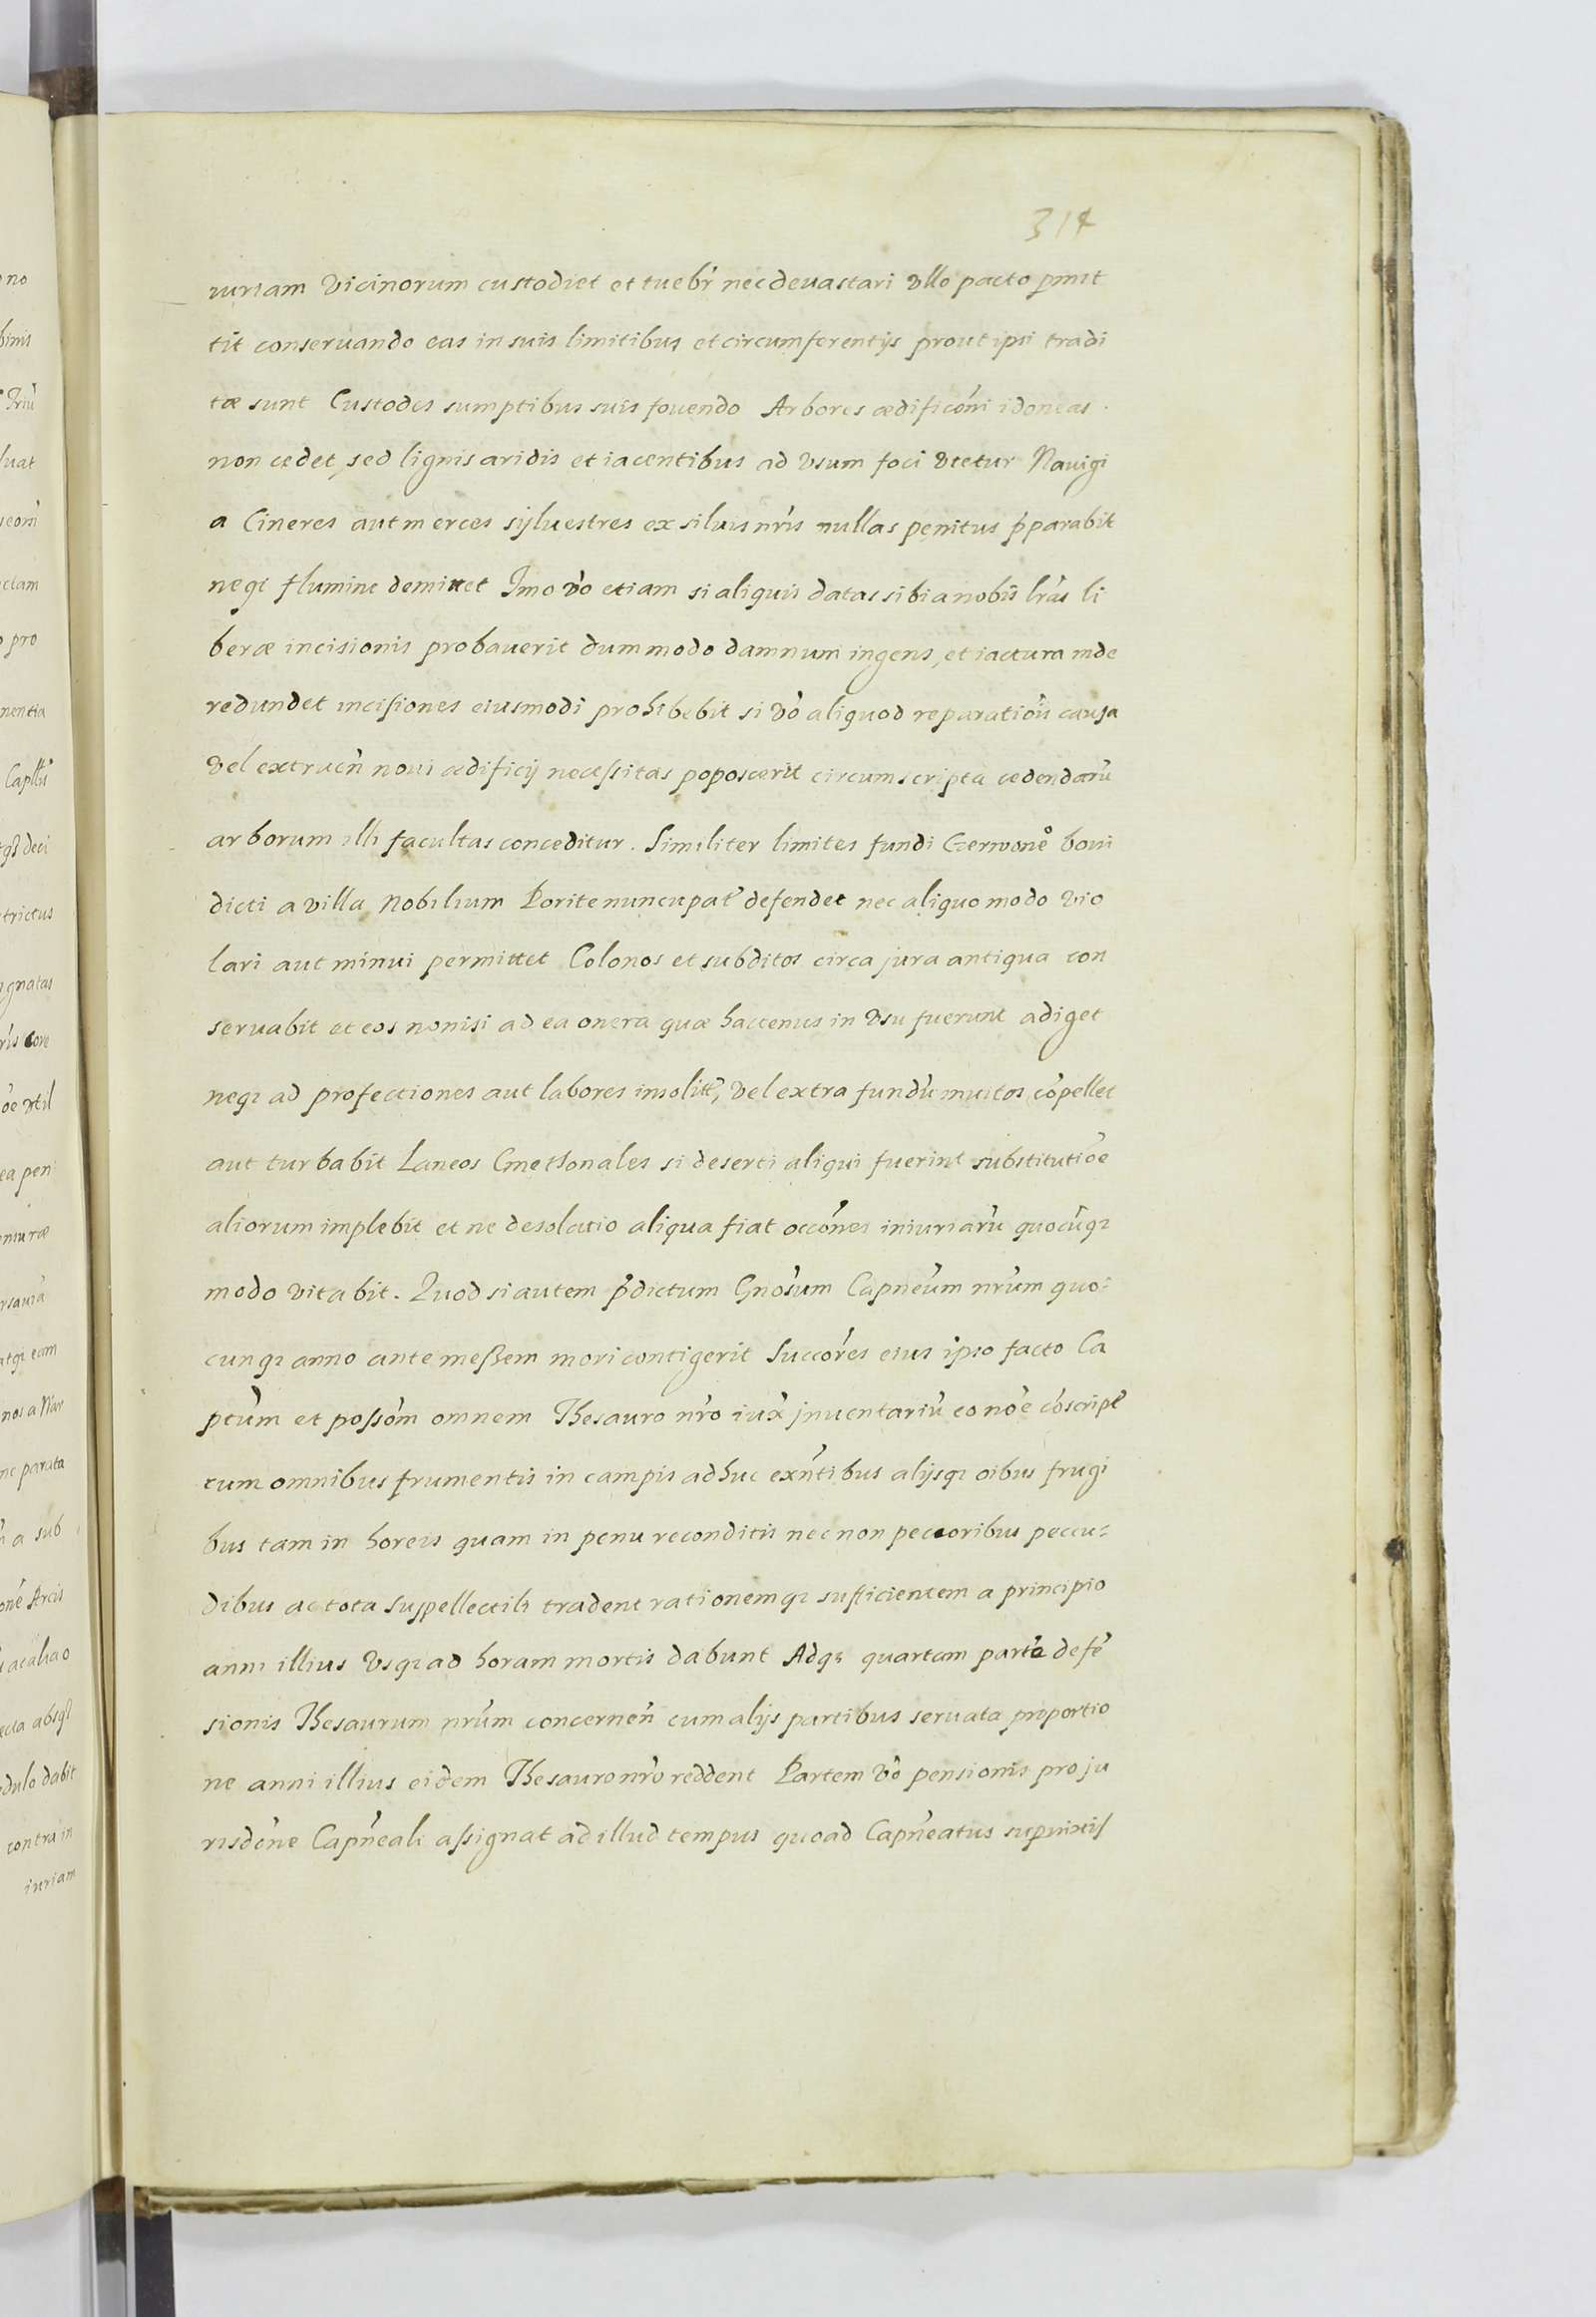 314
iuriam vicinorum custodiet et tuebr̃ nec devastari vllo pacto p̱mit
tit conseruando eas in suis limitibus et circumferentijs prout ipsi tradi
tæ sunt Custodes sumptibus suis fouendo Arbores ædificõni idoneas.
non cędet, sed lignis aridis et iacentibus ad vsum foci vtetur Nauigi
a Cineres aut merces syluestres ex siluis nr̃is nullas penitus p̃parabit
neq₃ flumine demittet Imo vo᷃ etiam si aliquis datas sibi a nobis lr̃as li
beræ incisionis probauerit dummodo damnum ingens, et iactura inde
redundet incisiones eiusmodi prohibebit si võ aliquod reparatiõis causa
vel extruen̄ noui ædificij necessitas poposcerit circumscripta cędendarũ
arborum illi facultas conceditur. Similiter limites fundi boni
dicti a villa Nobilium Porite nuncupat̃ defendet nec aliquo modo vio
lari aut minui permittet Colonos et subditos circa jura antiqua con
seruabit et eos nonisi ad ea onera quæ hactenus in vsu fuerunt adiget
neq₃ ad profectiones aut labores insolit̃, vel extra fundũ inuitos cõpellet
aut turbabit Laneos Cmethonales si deserti aliqui fuerint substitutiõe
aliorum implebit et ne desolatio aliqua fiat occõnes iniuriarũ quocũq₃
modo vitabit. Quod si autem p̃dictum Gnõsum Capnẽum nr̃um quo:
cunq₃ anno ante meßem mori contigerit Succõres eius ipso facto Ca
ptũm et possõm omnem Thesauro nr̃o iux̃ jnuentariũ eo nõe cõscript̃
cum omnibus frumentis in campis adhuc exñtibus alijsq₃ oibus frugi
bus tam in horeis quam in penu reconditis nec non pecoribus pecu:
dibus ac tota suppellectili tradent rationemq₃ sufficientem a principio
anni illius vsq₃ ad horam mortis dabunt Adq₃ quartam partẽ defẽ
sionis Thesaurum nr̃um concernen̄ cum alijs partibus seruata proportio
ne anni illius eidem Thesauro nr̃o reddent Partem võ pensionis pro ju
risdõne Capñeali assignat ad illud tempus quoad Capñeatus supuixis